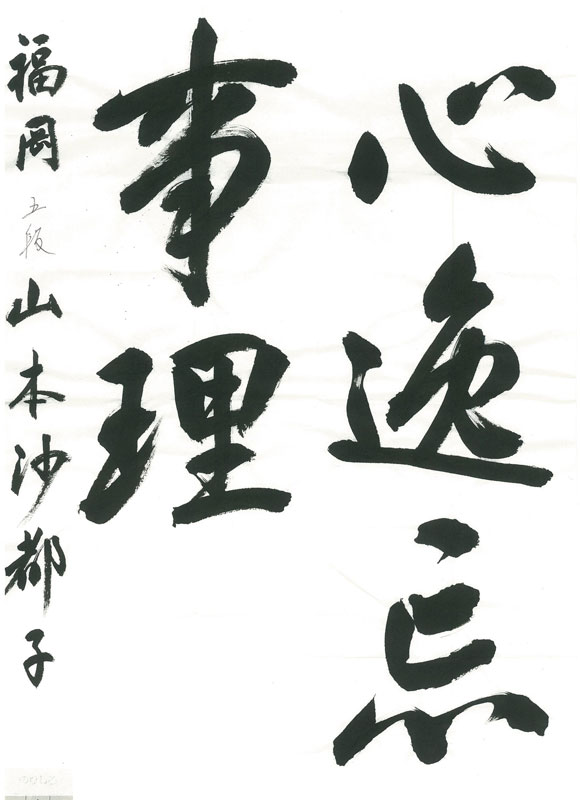 心逸忘
事理
福岡 五段 山本沙都子